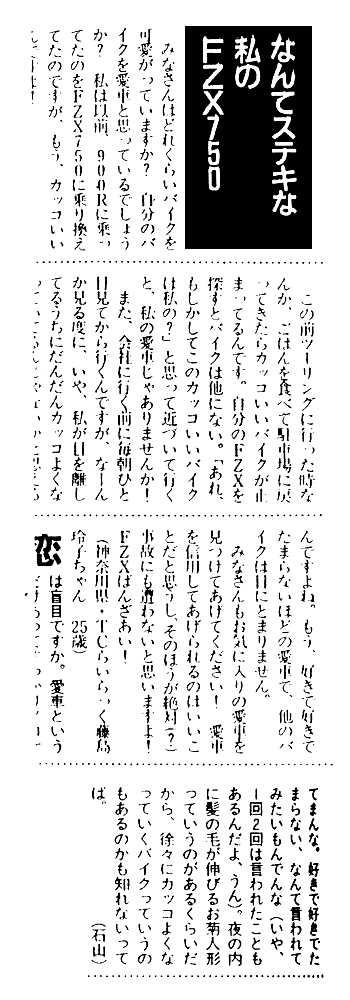 なんてステキな
私の
FZX750
みなさんはどれくらいバイクを
可愛がっていますか？　自分のバ
イクを愛車と思っているでしょう
か？　私は以前、900Rに乗っ
てたのをFZX750に乗り換え
てたのですが、もう、カッコいい
んですよ！
この前ツーリングに行った時な
んか、ごはんを食べて駐車場に戻
ってきたらカッコいいバイクが止
まってるんです。自分のFZXを
探すとバイクは他にない。「あれ、
もしかしてこのカッコいいバイク
は私の？」と思って近づいて行く
と、私の愛車じゃありませんか！
また、会社に行く前に毎朝ひと
目見てから行くんですが、なーん
か見る度に、いや、私が目を離し
てるうちにだんだんカッコよくな
んですよね。もう、好きで好きで
たまらないほどの愛車で、他のバ
イクは目にとまりません。
みなさんもお気に入りの愛車を
見つけてあげてください！　愛車
を信用してあげられるのはいいこ
とだと思うし、そのほうが絶対（？）
事故にも遭わないと思いますよ！
FZXばんざい！
（神奈川県・TCらいらっく藤島
玲子ちゃん　25歳）
恋は盲目ですか。愛車という
てまんな。好きで好きでた
まらない、なんて言われて
みたいもんでんな（いや、
1回2回は言われたことも
あるんだよ、うん）。夜の内
に髪の毛が伸びるお菊人形
っていうのがあるくらいだ
から、徐々にカッコよくな
っていくバイクっていうの
もあるのかも知れないって
ば。　（石山）